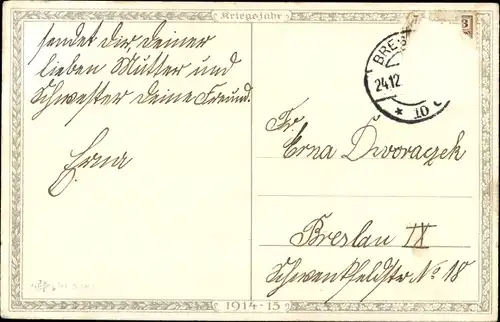 Kriegsjahr
sendet Dir, Deiner
lieben Mutter und
Schwester Deine Freund.
Erna
BRES
24.12
* 10
3
Fr.
Erna Dworaczek
Breslau IX
Schwenkfeldstr No 18
1914-15